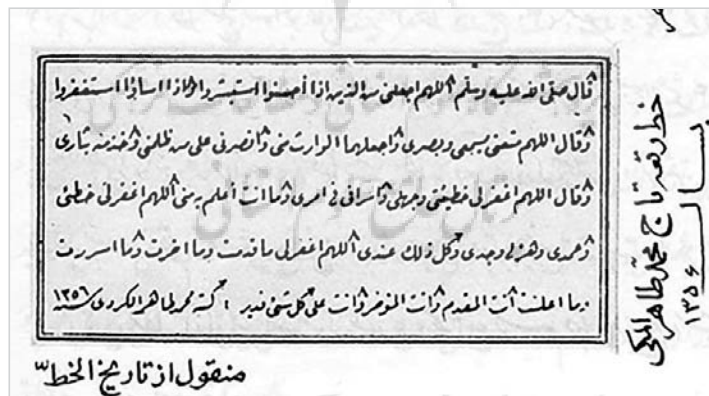 قال صلى الله عليه وسلم اللهم اجعلنى من الذين اذا احسنوا استبشروا واذا اساؤا استغفروا
وقال اللهم متعنى بسمعى وبصرى واجعلهما الوارث منى وانصرنى على من ظلمنى وخذ منه بثارى
وقال اللهم اغفر لى خطيئتى وجهلى واسرافى فى امرى وما انت اعلم به منى اللهم اغفر لى خطئى
وعمدى وهزلى وجدى وكل ذلك عندى اللهم اغفر لى ما قدمت وما اخرت وما اسررت
وما اعلنت أنت المقدم وانت المؤخر وانت على كل شئ قدير كتبه محمد طاهر الكردى سنة ١٣٥٦
خط رقعه تاج محمد طاهر المكى
بسال ١٣٥٦
منقول از تاريخ الخط